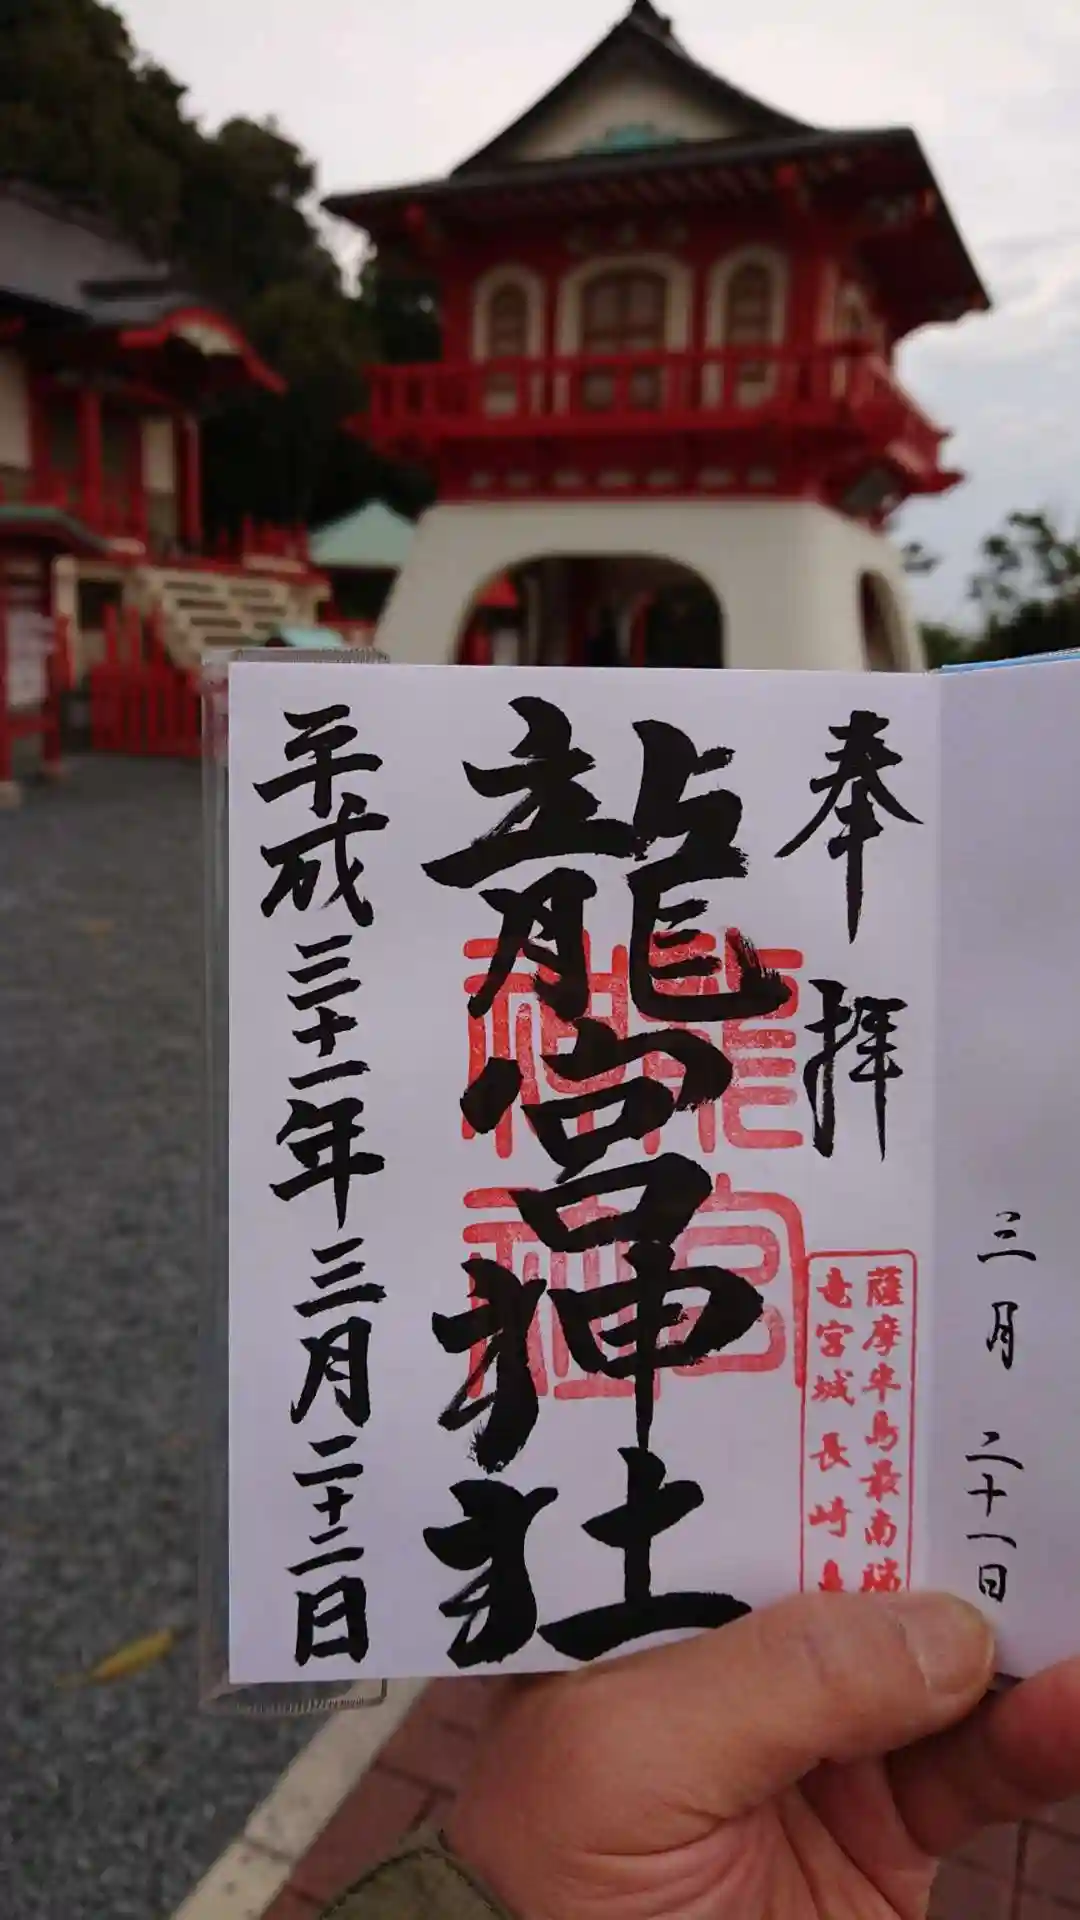 三月二十一日
奉拝
龍宮神社
平成三十一年三月二十二日
龍宮
神社
薩摩半島最南端
竜宮城長崎鼻